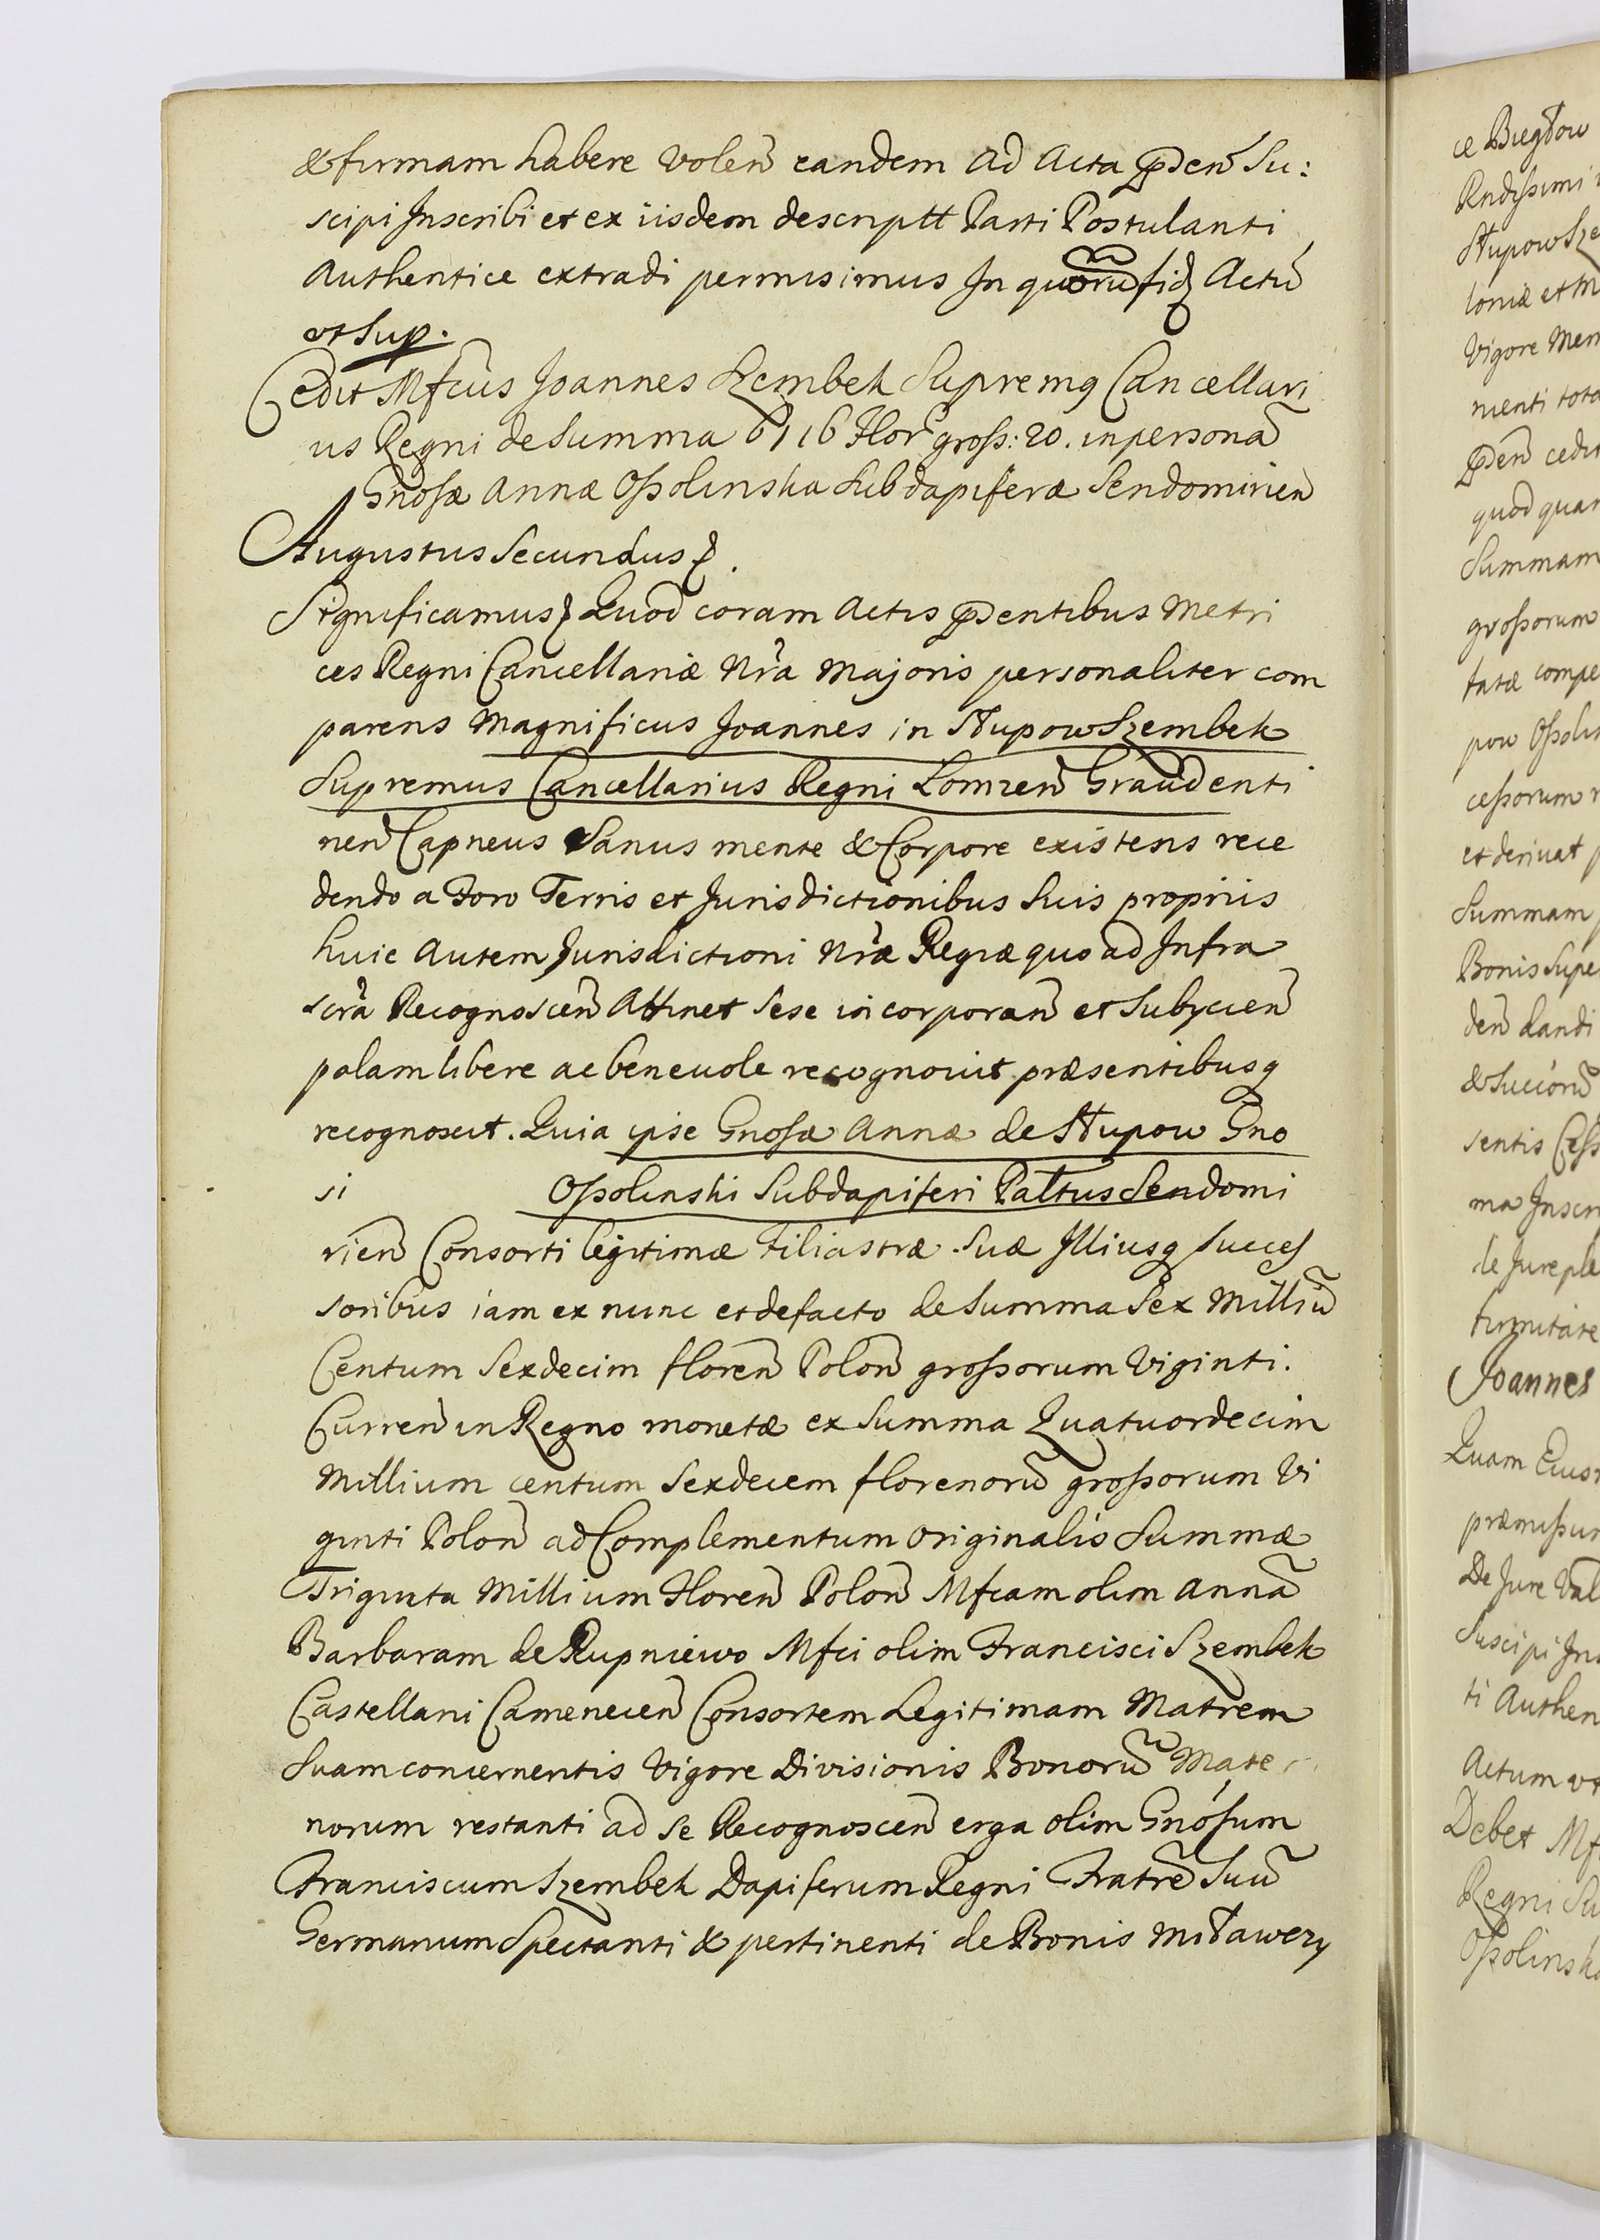 & firmam habere volen eandem ad Acta pñden Su:
scipi Inscribi et ex iisdem descriptt Parti Postulanti
Authentice extradi permisimus In quorũ fid Actũ
ut sup.
Cedit Mfcus Joannes Szembek Supremg Cancellari
us Regni de Summa 6116 Flor gross: 20. in personã
Gnosæ Annæ Ossolinska Subdapiferæ Sendomirien
Augustus Secundus
Significamus Quod coram Actis pñdentibus Metri
ces Regni Cancellariæ Nrã Majoris personaliter com
parens Magnificus Joannes in Słupow Szembek
Supremus Cancellarius Regni Lomzen Graudenti
nen Capneus Sanus mente & Corpore existens rece
dendo a Foro Terris et Jurisdictionibus Suis propriis
huic Autem Jurisdictioni Nræ Regiæ quo ad Infra
scrã Recognoscen Attinet sese incorporan et Subycien
palam libere ac beneuole recognouit præsentibusq
recognoscit. Quia ipse Gnosæ Annæ de Słupow Gno
si Ossolinski Subdapiferi Paltus Sendomi
rien Consorti legitimæ Filiastræ Suæ Illiusq succes
soribus iam ex nunc et de facto de Summa Sex Milliũ
Centum Sexdecim floren Polon grossorum Viginti.
Curren in Regno monetæ ex Summa Quatuordecim
Millium centum Sexdecem florenorũ grossorum Vi
ginti Polon ad Complementum Originalis Summæ
Triginta Millium Floren Polon Mfcam olim Annã
Barbaram de Rupniewo Mfci olim Francisci Szembek
Castellani Camenecen Consortem Legitimam Matrem
Suam concernentis Vigore Divisionis Bonorũ Mater
norum restanti ad se Recognoscen erga olim Gnosum
Franciscum Szembek Dapiferum Regni Fratrẽ Suũ
Germanum Spectanti & pertinenti de Bonis Miławczy
ce Biegłow
Rndissimi
Słupow Sze
loniæ et M
Vigore Men
menti tota
pñden cedit
quod quar
Summam
grossorum
tatæ compe
pow Ossolin
cessorum
et deriuat
Summam
Bonis Supe
den dandi
& Succorũ
sentis Cess
ma Inscri
le Jure ple
firmitate
Joannes
Quam Eius
præmissur
De Jure Val
Suscipi Ins
ti Authen
Actum ut
Debet Mf
Regni Su
Ossolinska